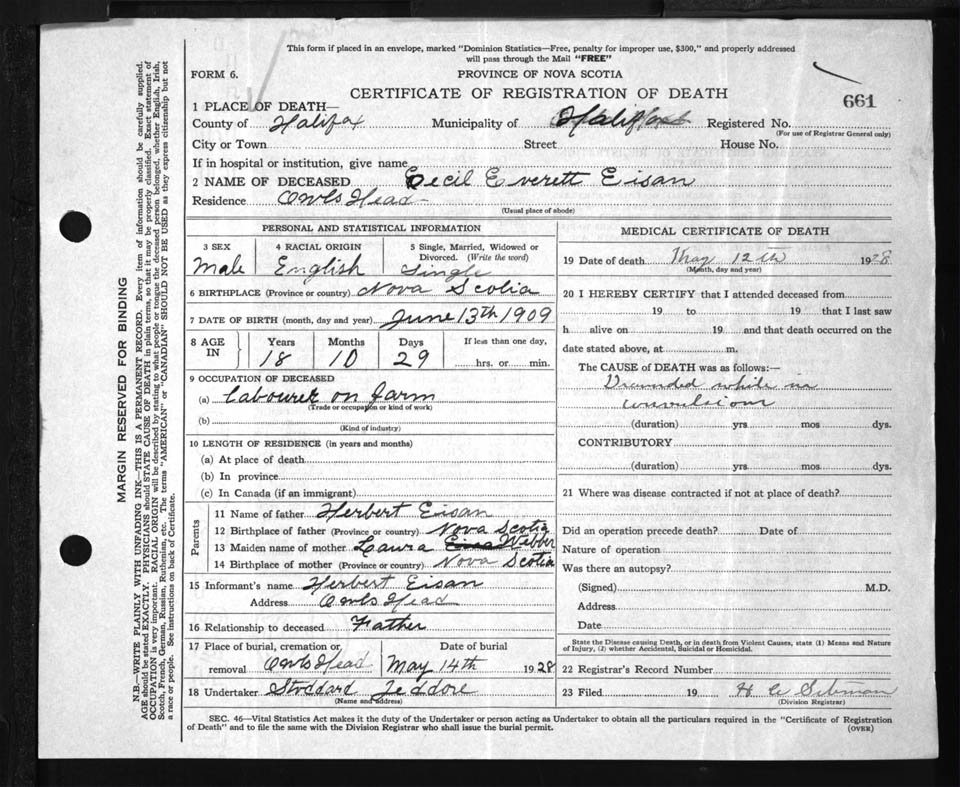 This form if placed in an envelope, marked "Dominion Statistics—Free, penalty for improper use, $300," and properly addressed
will pass through the Mail "FREE"
FORM 6.
PROVINCE OF NOVA SCOTIA
CERTIFICATE OF REGISTRATION OF DEATH
661
1 PLACE OF DEATH—
County of Halifax Municipality of Halifax Registered No.
(For use of Registrar General only)
City or Town Street House No.
If in hospital or institution, give name
2 NAME OF DECEASED Cecil Everett Eisan
Residence Owls Head
(Usual place of abode)
PERSONAL AND STATISTICAL INFORMATION
3 SEX 4 RACIAL ORIGIN 5 Single, Married, Widowed or
Divorced. (Write the word)
Male English Single
6 BIRTHPLACE (Province or country) Nova Scotia
7 DATE OF BIRTH (month, day and year) June 13th 1909
8 AGE IN Years Months Days If less than one day,
18 10 29 hrs. or min.
9 OCCUPATION OF DECEASED
(a) Labourer on farm
(Trade or occupation or kind of work)
(b)
(Kind of industry)
10 LENGTH OF RESIDENCE (in years and months)
(a) At place of death
(b) In province
(c) In Canada (if an immigrant)
Parents
11 Name of father Herbert Eisan
12 Birthplace of father (Province or country) Nova Scotia
13 Maiden name of mother Laura Webber
14 Birthplace of mother (Province or country) Nova Scotia
15 Informant's name Herbert Eisan
Address Owls Head
16 Relationship to deceased Father
17 Place of burial, cremation or Date of burial
removal Owls Head May 14th 1928
18 Undertaker Stoddard Jeddore
(Name and address)
MEDICAL CERTIFICATE OF DEATH
19 Date of death May 12th 1928
(Month, day and year)
20 I HEREBY CERTIFY that I attended deceased from
19 to 19 that I last saw
h alive on 19 and that death occurred on the
date stated above, at m.
The CAUSE of DEATH was as follows:—
Drowned while in
convulsions
(duration) yrs. mos. dys.
CONTRIBUTORY
(duration) yrs. mos. dys.
21 Where was disease contracted if not at place of death?
Did an operation precede death? Date of
Nature of operation
Was there an autopsy?
(Signed) M.D.
Address
Date
State the Disease causing Death, or in death from Violent Causes, state (1) Means and Nature
of Injury, (2) whether Accidental, Suicidal or Homicidal.
22 Registrar's Record Number
23 Filed 19 H
(Division Registrar)
SEC. 46—Vital Statistics Act makes it the duty of the Undertaker or person acting as Undertaker to obtain all the particulars required in the "Certificate of Registration
of Death" and to file the same with the Division Registrar who shall issue the burial permit.
(OVER)
MARGIN RESERVED FOR BINDING
N.B.—WRITE PLAINLY WITH UNFADING INK—THIS IS A PERMANENT RECORD. Every item of information should be carefully supplied.
AGE should be stated EXACTLY. PHYSICIANS should STATE CAUSE OF DEATH in plain terms, so that it may be properly classified. Exact statement of
OCCUPATION is very important. RACIAL ORIGIN will be described by stating to what people or tongue the deceased person belonged, whether English, Irish,
Scotch, French, German, Russian, Ruthenian, etc. The terms "AMERICAN" or "CANADIAN" SHOULD NOT BE USED as they express citizenship but not
a race or people. See instructions on back of Certificate.